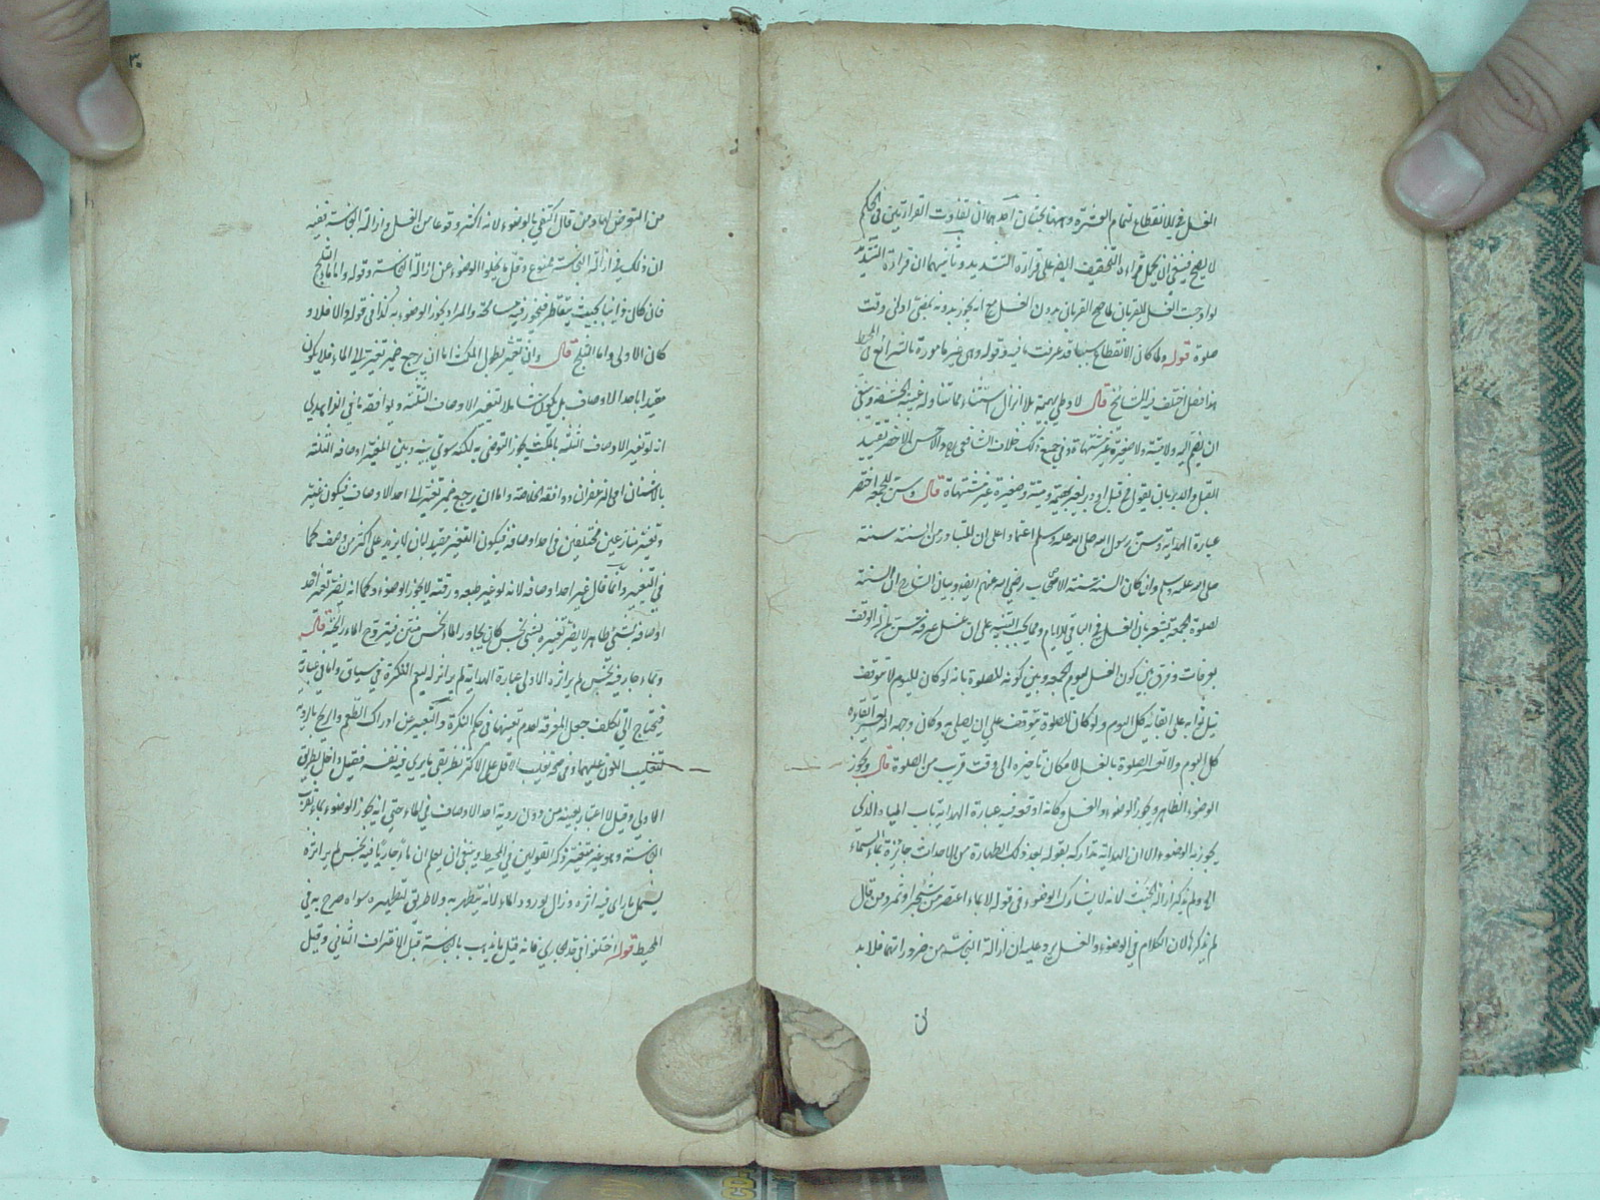 الغسل في الانقطاع لتمام العشرة وههنا بحثان احدهما ان تفاوت القراءتين في الحكم
لا يصح فينبغي ان يحمل قراءة التخفيف ايضا على قراءة التشديد وثانيهما ان قراءة التشديد
لو اوجبت الغسل للقربان لما صح القربان بدون الغسل مع انه يجوز بدونه بمضي ادنى وقت
صلوة قوله ولما كان الانقطاع سببا قد عرفت ما فيه وقوله وهي غير مامورة بالشرائع في المحيط
هذا فصل اختلف فيه المشايخ قال لا وطي بهيمة بلا انزال استثناء مما تناوله غيبة الحشفة وينبغي
ان يضم اليه ولا ميتة ولا صغيرة غير مشتهاة وفي جميع ذلك خلاف الشافعي
القبل والدبر بان يقول في قبل او دبر لغير بهيمة وميتة وصغيرة غير مشتهاة قال وسن للجمعة اختصر
عبارة الهداية وسن رسول الله صلى الله عليه وسلم اعتمادا على ان المتبادر من السنة سنته
صلى الله عليه وسلم وان كان السنة سنة الاصحاب رضي الله عنهم ايضا وبيان الشارح ان السنة
لصلوة الجمعة يشعر بان الغسل في الباقي للايام ومما يجب التنبيه على ان غسل عرفة
بعرفات وفرق بين كون الغسل ليوم الجمعة وبين كونه للصلوة بانه لو كان لليوم لا يتوقف
نيل ثوابه على ابقائه كل اليوم ولو كان للصلوة يتوقف على ان يصلي به وكان وجهه
كل اليوم ولا تعسر الصلوة بالغسل لامكان تاخيره الى وقت قريب من الصلوة قال ويجوز
الوضوء الظاهر ويجوز الوضوء والغسل وكانه اوقعه فيه عبارة الهداية باب الماء الذي
يجوز به الوضوء الا ان الهداية تداركه بقوله بعد ذلك الطهارة من الاحداث جائزة بماء السماء
الى ولم يذكر ازالة الخبث لانه لا يشارك الوضوء في قوله لا بماء اعتصر من شجر او ثمر ومن قال
لم يذكرها لان الكلام في الوضوء والغسل يرد عليه ان ازالة النجاسة من ضروراتهما فلا بد
٣٠
من التعرض لها ومن قال اكتفي بالوضوء لانه اكثر وقوعا من الغسل وازالة النجاسة ففيه
ان ذلك في ازالة النجاسة ممنوع وقل ما يخلو الوضوء عن ازالة النجاسة وقوله واما ماء الثلج
فان كان ذائبا بحيث يتقاطر فيجوز فيه مسامحة والمراد يجوز الوضوء به كذا في قوله والا فلا و
كان الاولى واما الثلج قال وان تغير بطول المكث اما ان يرجع ضمير تغير الى الماء فلا يكون
مقيدا باحد الاوصاف بل يكون شاملا لتغير الاوصاف الثلثة ويوافقه ما في الزاهدي
انه لو تغير الاوصاف الثلثة بالمكث يجوز التوضي به لكنه سوى بينه وبين المغير اوصافه الثلثة
بالاشنان او الزعفران ووافقه الخلاصة واما ان يرجع ضمير تغير الى احد الاوصاف فيكون غير
وتغير متنازعين مختلفين في احد اوصافه فيكون التغير مقيد بان لا يزيد على اكثر من وصف كما
في التغيير وانما قال غير احد اوصافه لانه لو غير طبعه ورقته لا يجوز الوضوء وكما انه لا يضر تغير احد
اوصافه بشيء طاهر لا يضر تغيره بشيء نجس كان يجاور الماء نجس منتن فيتروح الماء رائحته قال
وبماء جار فيه نجس لم ير اثره الاولى عبارة الهداية لم ير له اثر ليقع النكرة في سياق واما في عبارته
فيحتاج الى تكلف جعل المعرفة لعدم تعينها في حكم النكرة والتعبير عن ادراك الطعم والريح بالرؤية
لتغليب اللون عليهما وفي صحة تغليب الاقل على الاكثر نظر بقي ما يرى فيه نفسه فقيل داخل بطريق
الاولى وقيل لا اعتبار بعينه من دون رؤية احد الاوصاف في الماء حتى انه يجوز الوضوء بماء بقرب
النجاسة وهو غير متغير ذكر القولين في المحيط وينبغي ان يعلم ان ماء جاريا فيه نجس لم ير اثره
يشمل ما راى فيه اثره وزال بورود الماء لانه يتطهر به ولا طريق لتطهيره سواه صرح به في
المحيط قوله اختلفوا في حد الجاري فانه قيل ما يذهب بالنجاسة قبل الاغتراف الثاني وقيل